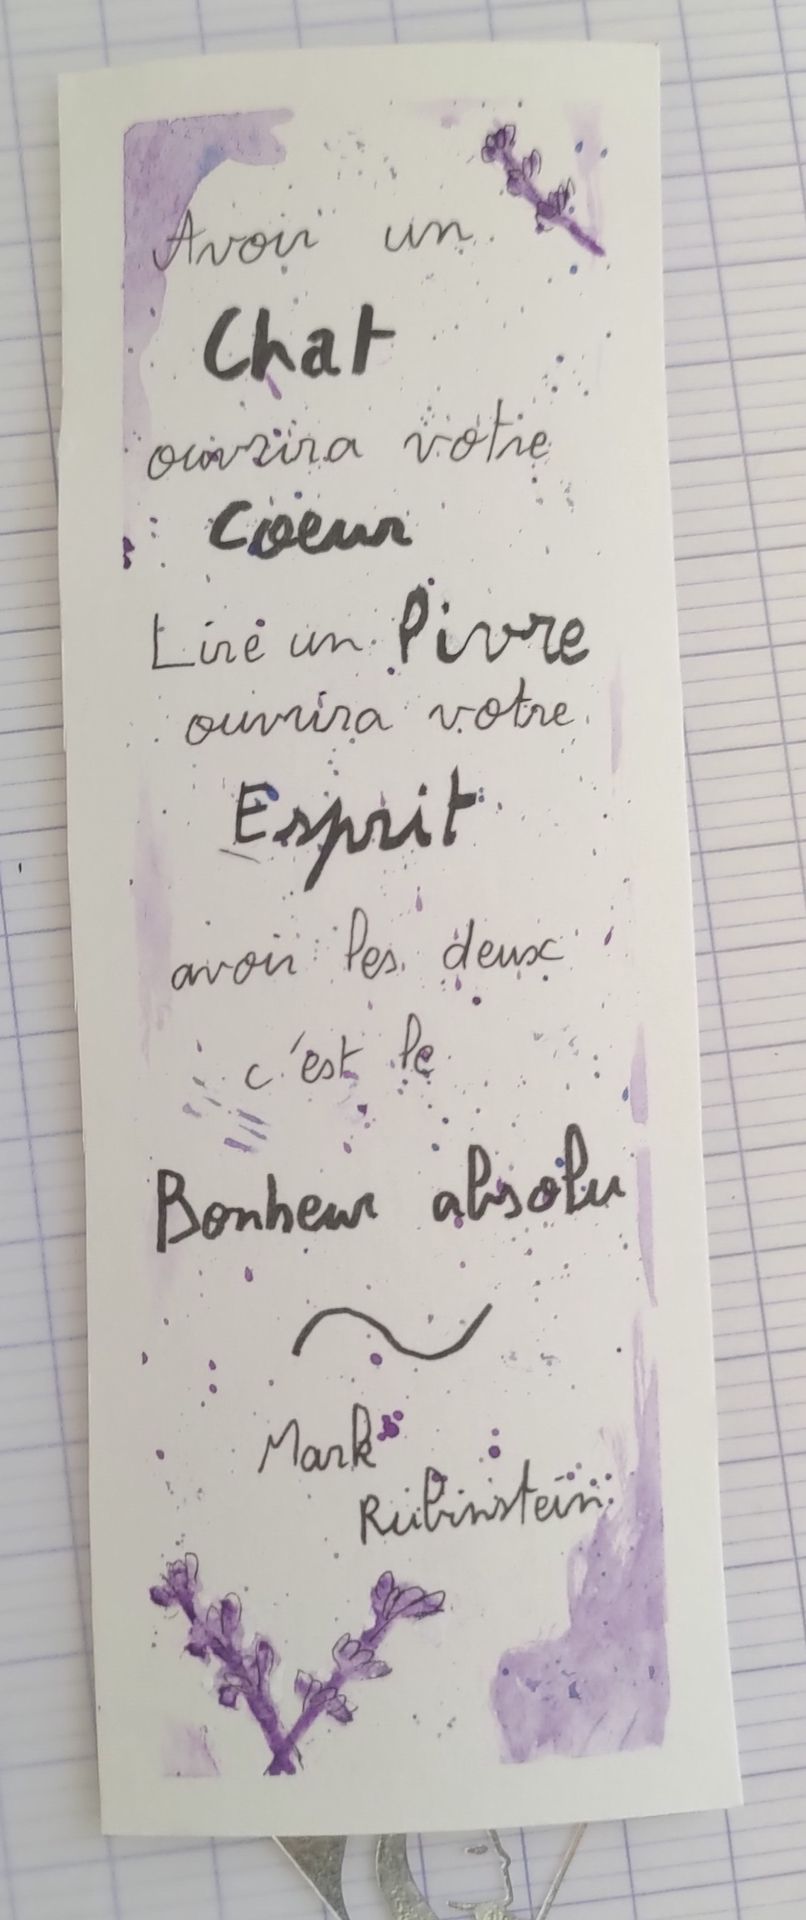 Avoir un
Chat
ouvrira votre
Coeur
Lire un livre
ouvrira votre
Esprit
avoir les deux
c'est le
Bonheur absolu
Mark
Rubinstein